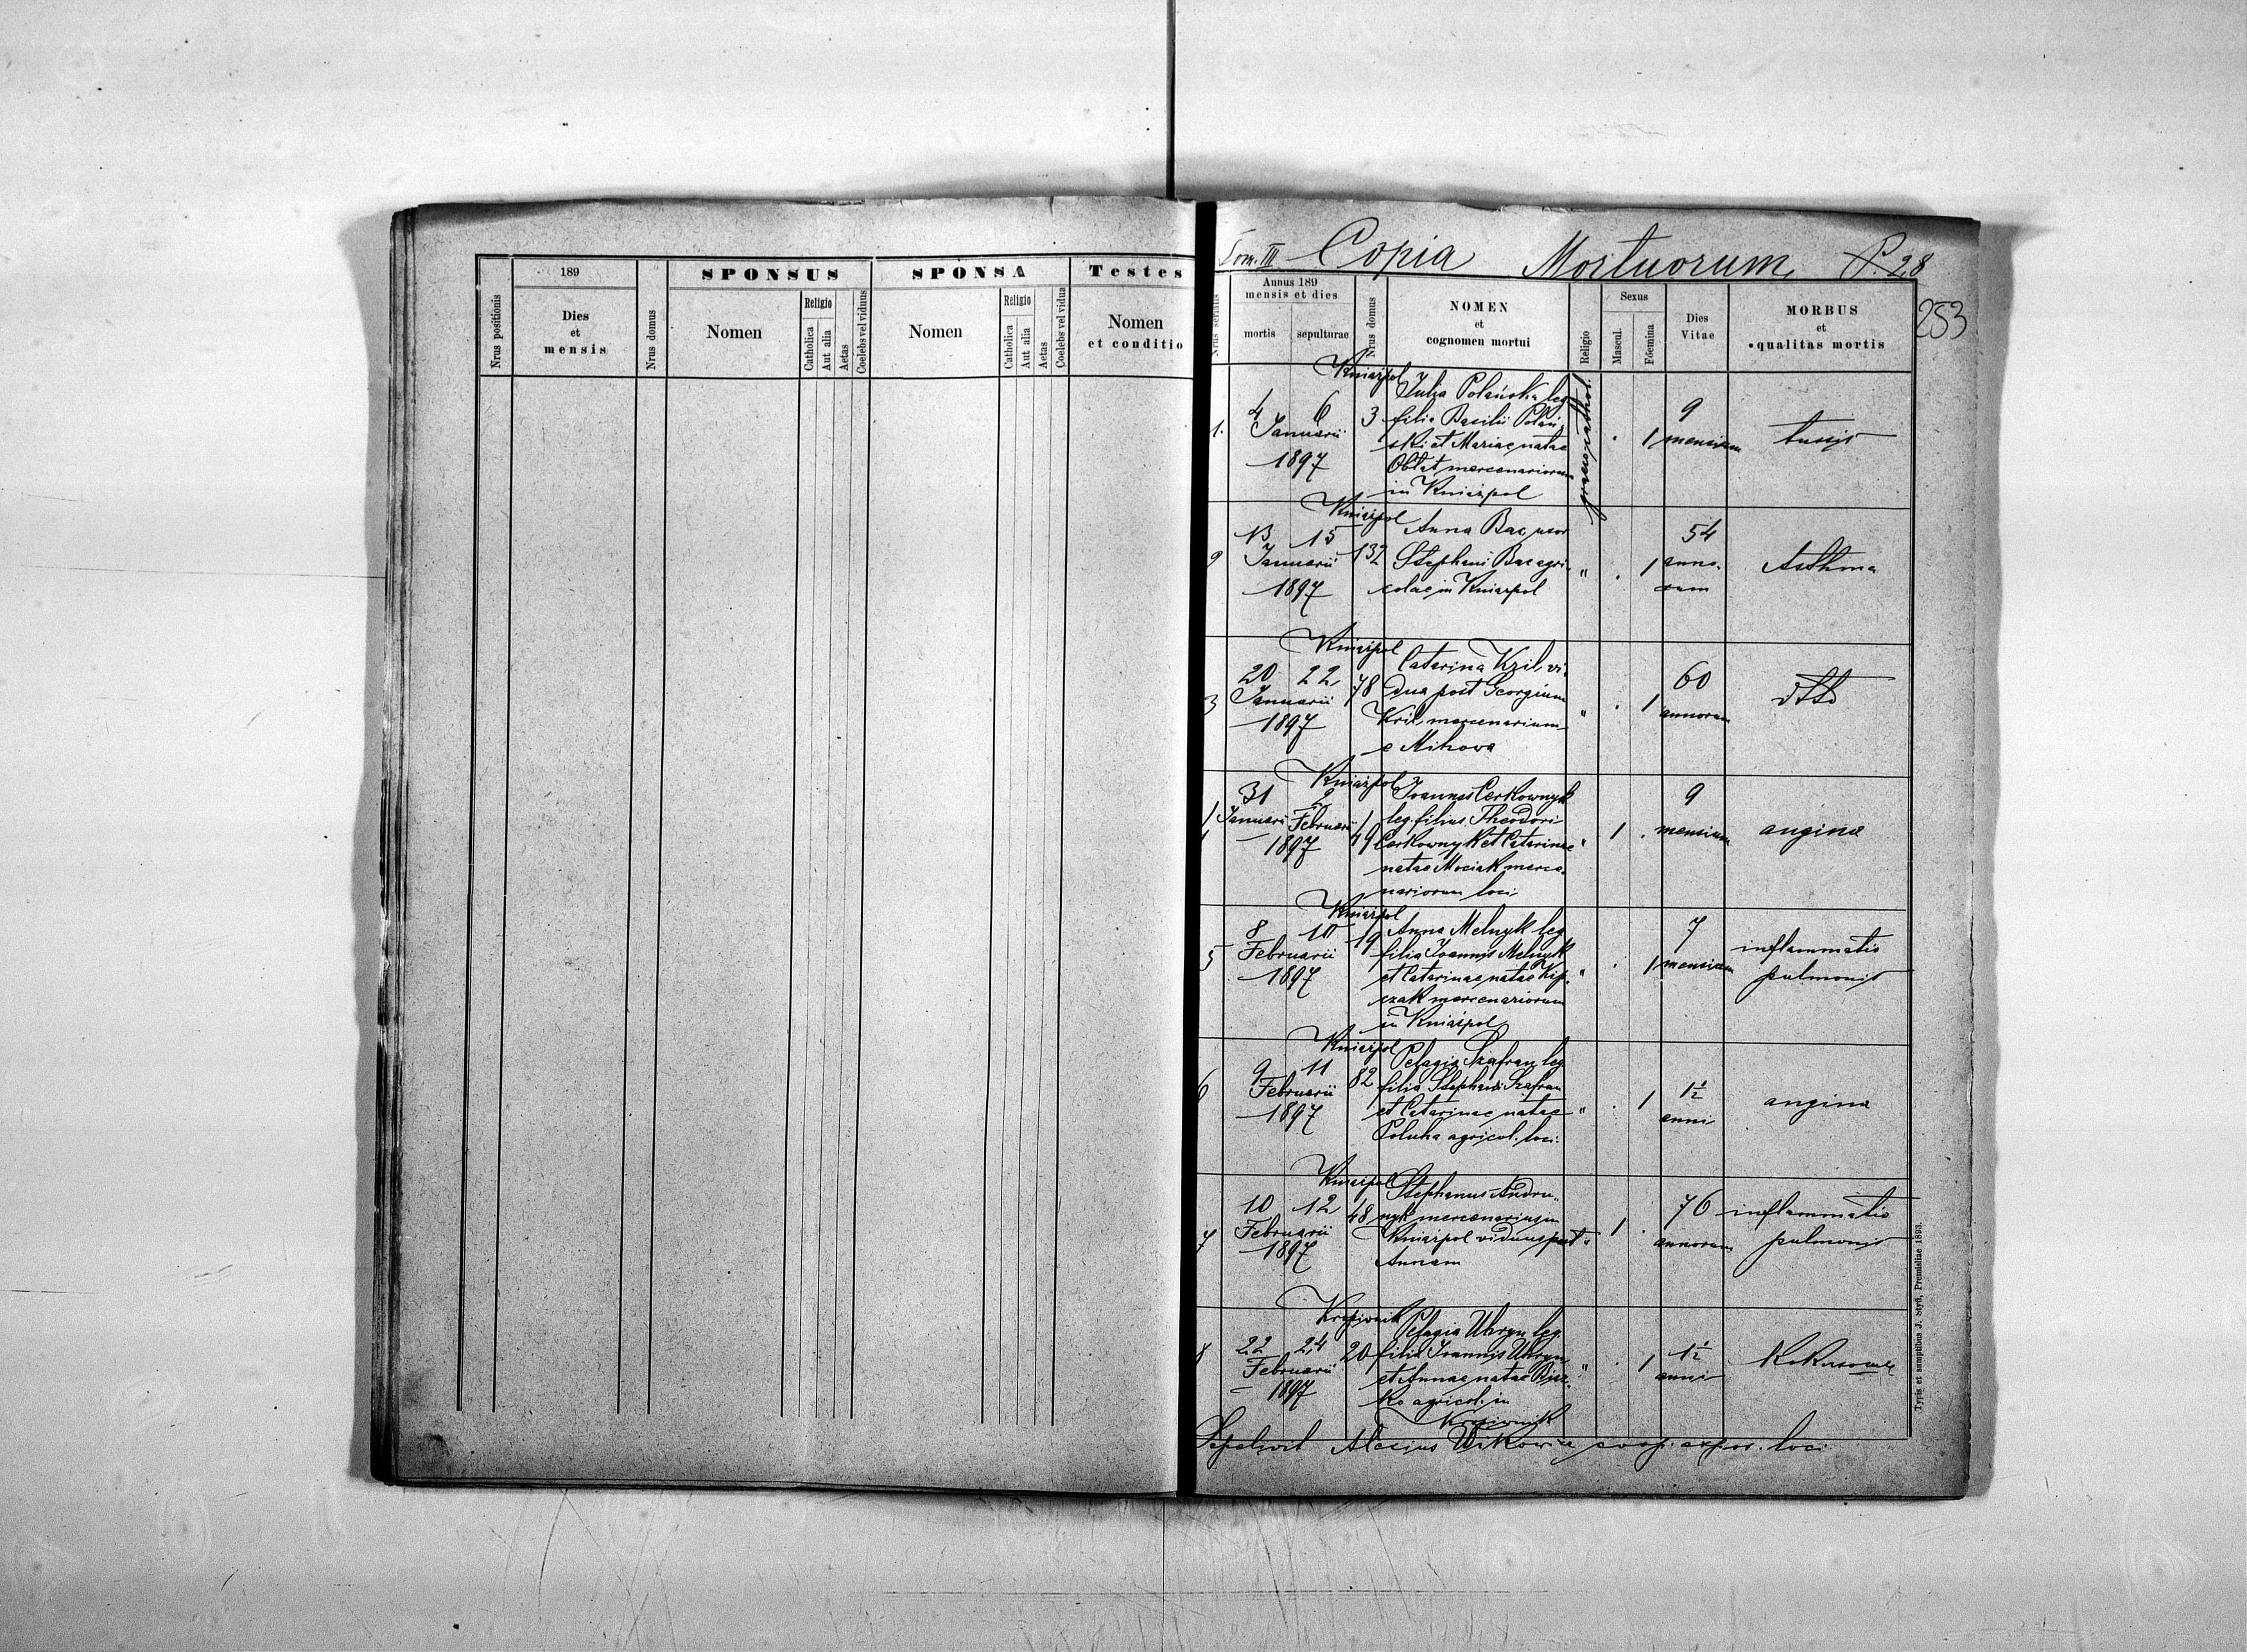 189
SPONSUS
SPONSA
Testes
Nrus positionis
Dies
et
mensis
Nrus domus
Nomen
Religio
Catholica
Aut alia
Aetas
Coelebs vel viduus
Nomen
Religio
Catholica
Aut alia
Aetas
Coelebs vel vidua
Nomen
et conditio
Tom. III Copia Mortuorum P. 28
253
Nrus serialis
Annus 189
mensis et dies
mortis
sepulturae
Nrus domus
NOMEN
et
cognomen mortui
Religio
Sexus
Mascul.
Foemina
Dies
Vitae
MORBUS
et
qualitas mortis
Kniażpol
1. 4 6 Januarii 1897
3
Julia Polańska leg.
filia Basilii Polań
ski et Mariae natae
Obłat mercenariorum
in Kniażpol
graeco cathol.
1
9
mensium
tussis
Kniażpol
13 15 Januarii 1897
132
Anna Bac uxor
Stephani Bac agri-
colae in Kniażpol
" 1
54
anno-
rum
Asthma
Kniażpol
3 20 22 Januarii 1897
78
Catarina Kril vi-
dua post Georgium
Kril mercenarium
e Mihowa
" 1
60
annorum
dtto
Kniażpol
31 Januarii 2 Februarii 1897
49
Joannes Cerkownyk
leg. filius Theodori
Cerkownyk et Catarinae
natae Mociak merce-
nariorum loci
" 1
9
mensium
angina
Kniażpol
5 8 10 Februarii 1897
19
Anna Melnyk leg.
filia Joannis Melnyk
et Catarinae natae Kip-
czak mercenariorum
in Kniażpol
" 1
7
mensium
inflammatio
pulmonis
Kniażpol
6 9 11 Februarii 1897
82
Pelagia Szafran leg.
filia Stephani Szafran
et Catarinae natae
Poluha agricol. loci.
" 1
1 1/2
anni
angina
Kniażpol
7 10 12 Februarii 1897
48
Stephanus Andru-
nyk mercenarius in
Kniażpol viduus post
Annam
" 1
76
annorum
inflammatio
pulmonis
Kropiwnik
8 22 24 Februarii 1897
20
Pelagia Uhryn leg.
filia Joannis Uhryn
et Annae natae
ko agricol. in
Kropiwnik
" 1
1 1/2
anni
Sepelivit Alexius coop. expos. loci
Typis et sumptibus J. Styfi, Premisliae 1893.